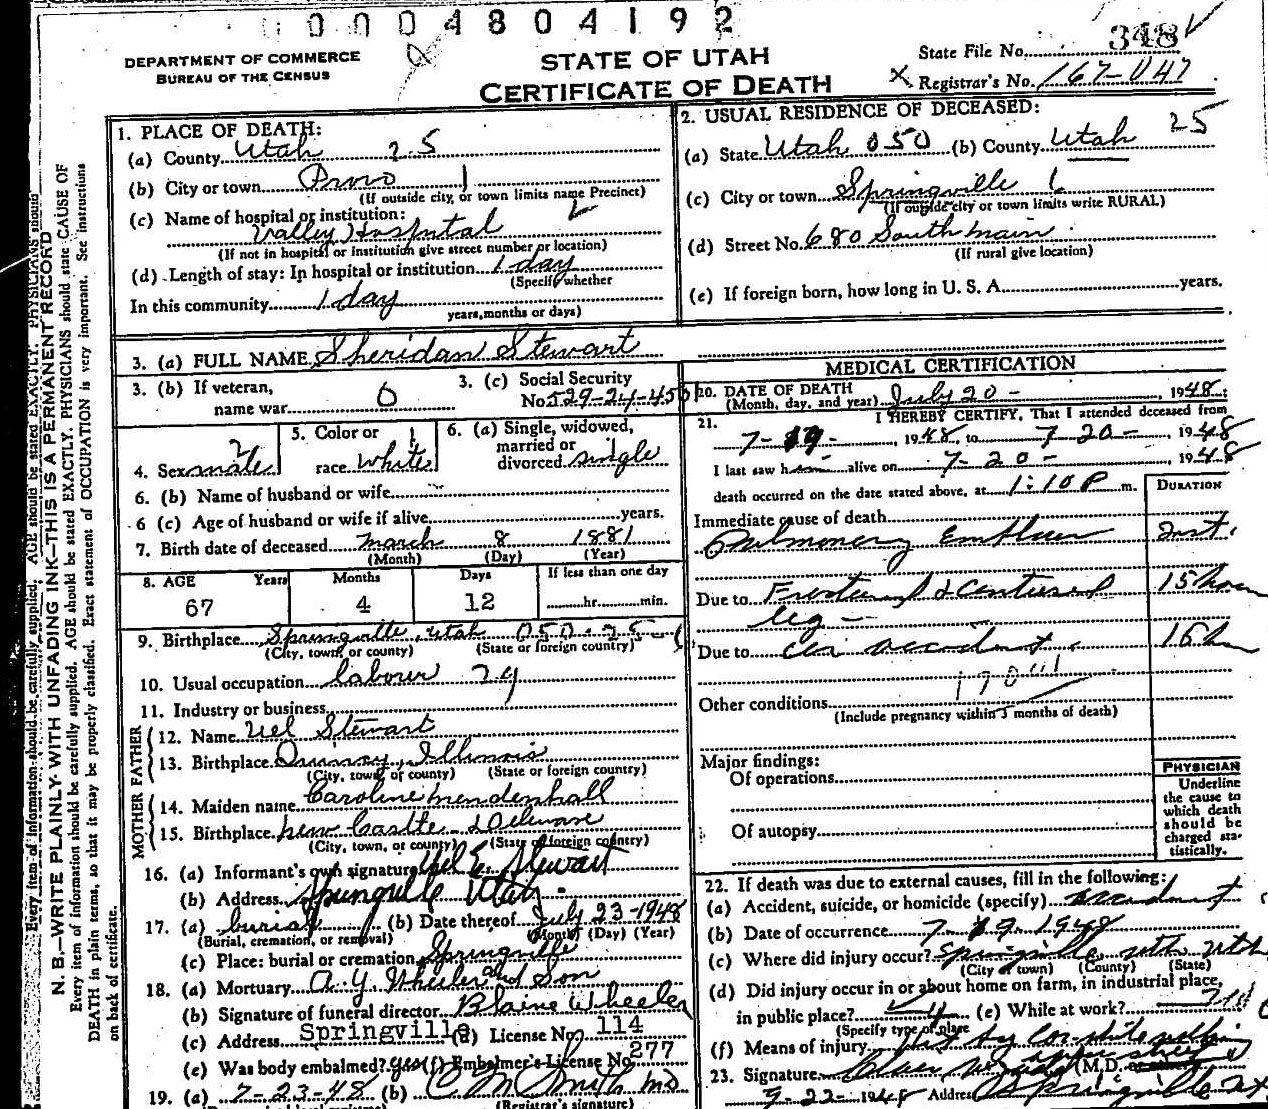 0004804192
DEPARTMENT OF COMMERCE
BUREAU OF THE CENSUS
STATE OF UTAH
CERTIFICATE OF DEATH
State File No. 348
X Registrar's No. 167-047
N. B.—WRITE PLAINLY WITH UNFADING INK—THIS IS A PERMANENT RECORD
Every item of information should be carefully supplied. AGE should be stated EXACTLY. PHYSICIANS should state CAUSE OF
DEATH in plain terms, so that it may be properly classified. Exact statement of OCCUPATION is very important. See instructions
on back of certificate.
1. PLACE OF DEATH:
(a) County Utah 25
(b) City or town Provo 1
(If outside city, or town limits name Precinct)
(c) Name of hospital or institution:
Valley Hospital
(If not in hospital or institution give street number or location)
(d) Length of stay: In hospital or institution 1 day
(Specify whether
In this community 1 day
years, months or days)
2. USUAL RESIDENCE OF DECEASED:
(a) State Utah 050 (b) County Utah 25
(c) City or town Springville
(If outside city or town limits write RURAL)
(d) Street No. 680 South main
(If rural give location)
(e) If foreign born, how long in U. S. A. years.
3. (a) FULL NAME Sheridan Stewart
3. (b) If veteran,
name war 0
3. (c) Social Security
No. 529-24-45
4. Sex male
5. Color or
race White
6. (a) Single, widowed,
married or
divorced single
6. (b) Name of husband or wife
6 (c) Age of husband or wife if alive years.
7. Birth date of deceased March 8 1881
(Month) (Day) (Year)
8. AGE Years Months Days If less than one day
67 4 12 hr. min.
9. Birthplace Springville, Utah 050-25-
(City, town, or county) (State or foreign country)
10. Usual occupation labourer
11. Industry or business
FATHER
12. Name Uel Stewart
13. Birthplace Quincy, Illinois
(City, town, or county) (State or foreign country)
MOTHER
14. Maiden name Caroline Mendenhall
15. Birthplace New Castle Delaware
(City, town, or county) (State or foreign country)
16. (a) Informant's own signature Uel E. Stewart
(b) Address Springville Utah
17. (a) burial (b) Date thereof July 23-1948
(Burial, cremation, or removal) (Month) (Day) (Year)
(c) Place: burial or cremation Springville
18. (a) Mortuary A. Y. Wheeler and Son
(b) Signature of funeral director Blaine Wheeler
(c) Address Springville (d) License No. 114
(e) Was body embalmed? yes (f) Embalmer's License No. 277
19. (a) 7-23-48 (b)
(Registrar's signature)
MEDICAL CERTIFICATION
20. DATE OF DEATH
(Month, day, and year) July 20 - , 1948:
21. I HEREBY CERTIFY, That I attended deceased from
7-19- , 1948, to 7-20- , 1948
I last saw him alive on 7-20- , 1948
death occurred on the date stated above, at 1:10 P m.
DURATION
Immediate cause of death
Pulmonary Inst.
Due to Fractured & Contused 15 hour
leg -
Due to car accident 16 h
Other conditions
(Include pregnancy within 3 months of death)
Major findings:
Of operations
Of autopsy
PHYSICIAN
Underline
the cause to
which death
should be
charged sta-
tistically.
22. If death was due to external causes, fill in the following:
(a) Accident, suicide, or homicide (specify) accident
(b) Date of occurrence 7-19-1948
(c) Where did injury occur? Springville Utah Utah
(City or town) (County) (State)
(d) Did injury occur in or about home on farm, in industrial place,
in public place? (e) While at work?
(Specify type of place
(f) Means of injury hit by
23. Signature (M.D. or other)
1948 Address Springville Ut